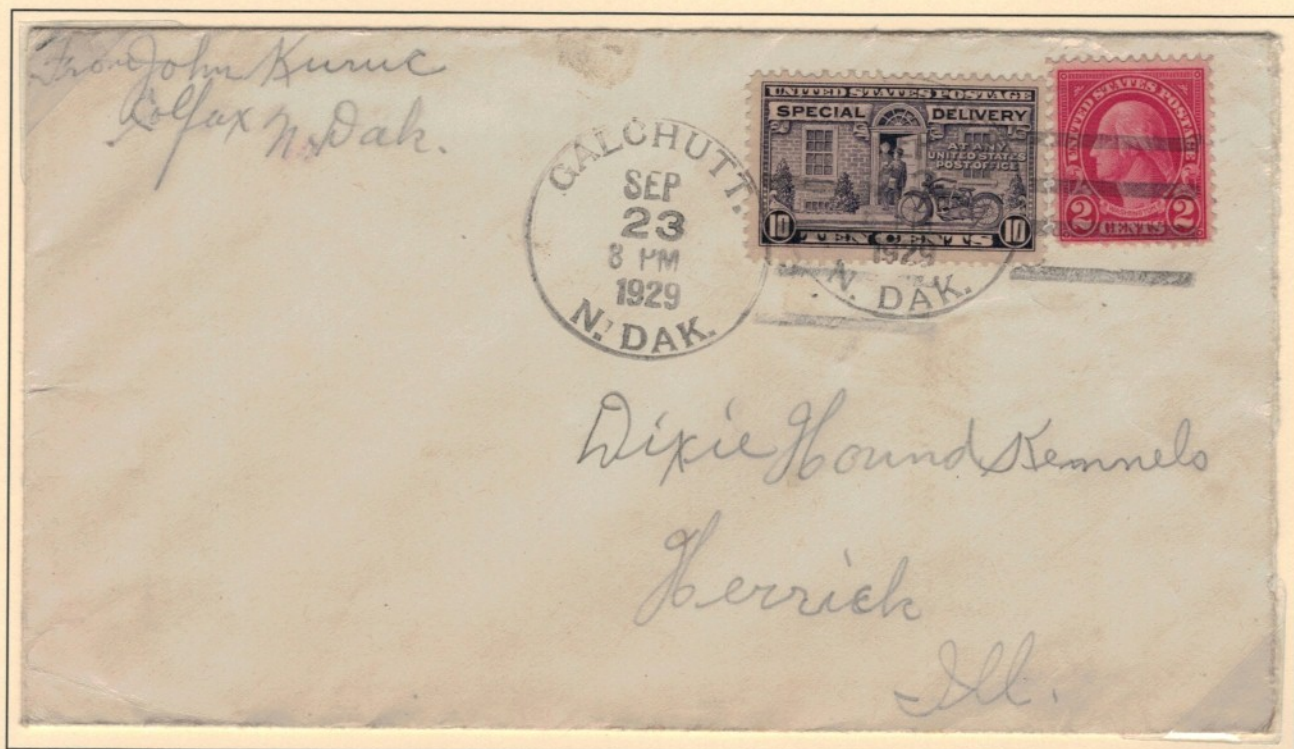 From John Kuruc
Colfax N. Dak.
GALCHUTT.
SEP
23
8 PM
1929
N. DAK.
UNITED STATES POSTAGE
SPECIAL DELIVERY
AT ANY
UNITED STATES
POST OFFICE
10 TEN CENTS 10
1929
N. DAK.
UNITED STATES POSTAGE
WASHINGTON
2 CENTS 2
Dixie Hound Kennels
Herrick
Ill.